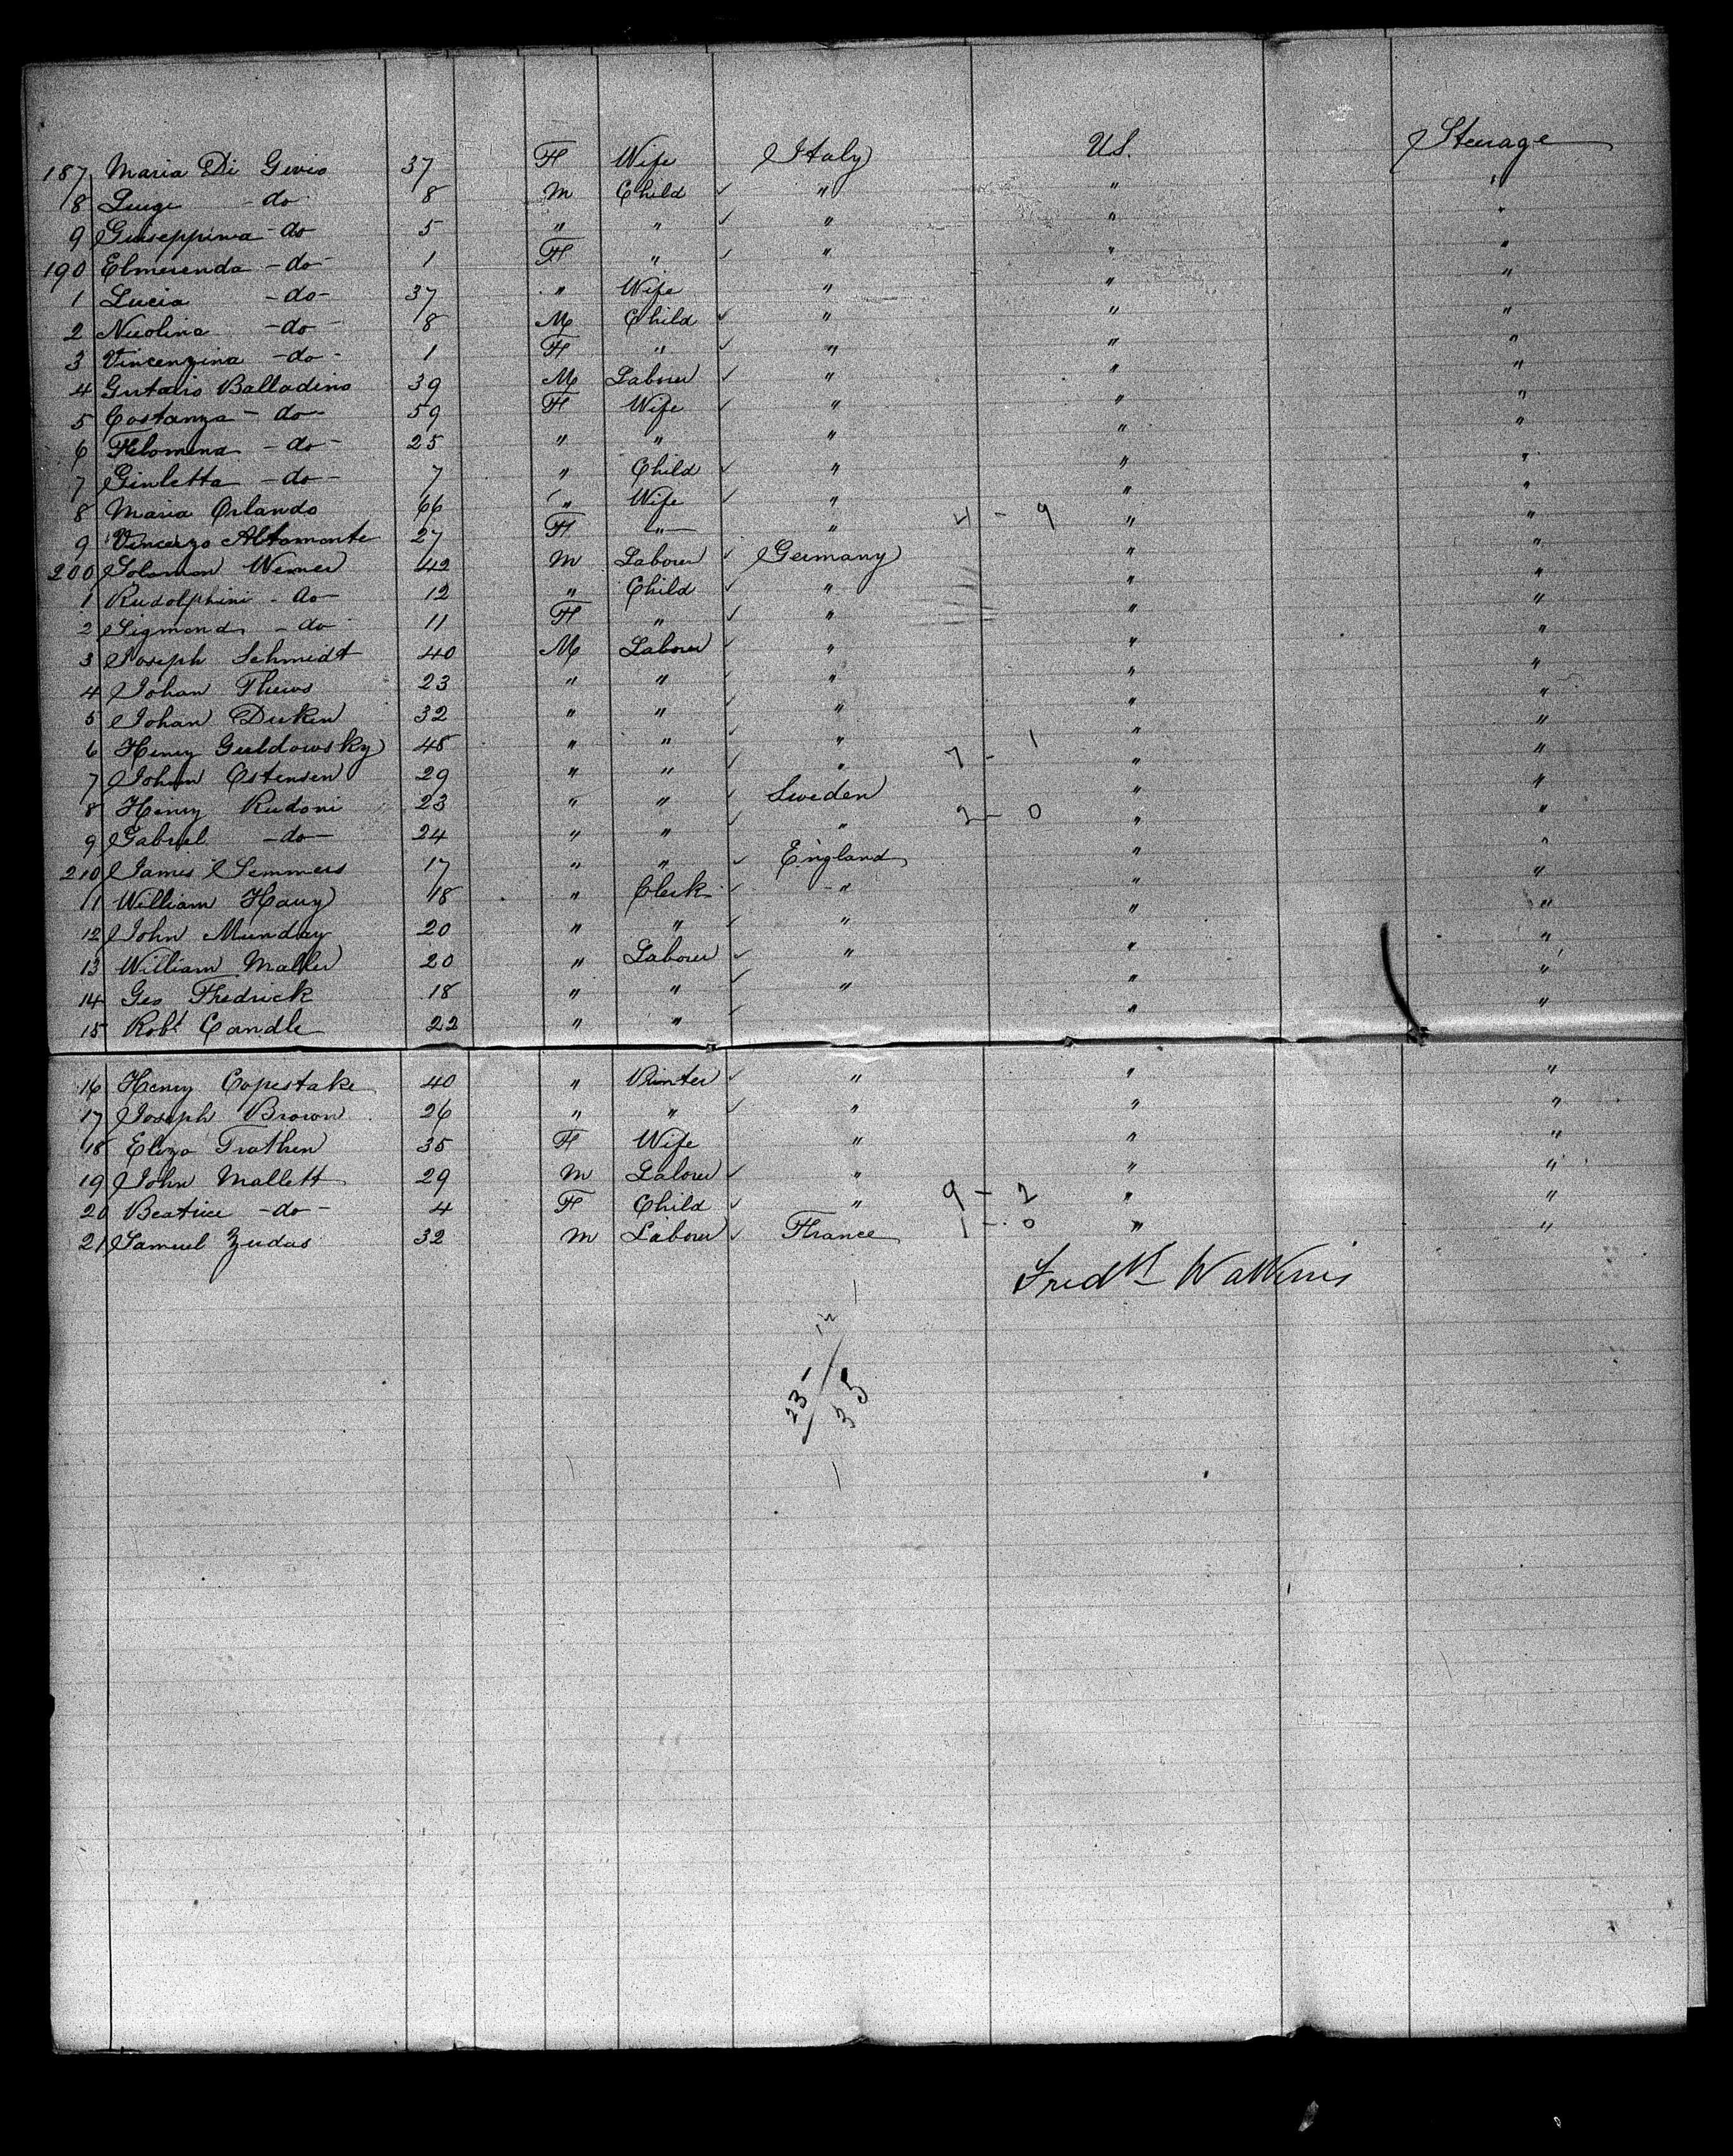 187 Maria Di Gervio 37 F Wife Italy U.S. Steerage
8 Luigi -do- 8 M Child ✓ " " "
9 Giuseppina -do 5 " " ✓ " " "
190 Elmerenda -do- 1 F " ✓ " " "
1 Lucia -do- 37 " Wife " " "
2 Nicolina -do- 8 M Child ✓ " " "
3 Vincenzina -do- 1 F " ✓ " " "
4 Balladino 39 M Laborer ✓ " " "
5 Costanza -do- 59 F Wife ✓ " " "
6 Filomena -do- 25 " " " " "
7 Giuletta -do- 7 " Child ✓ " " "
8 Maria Orlando 66 " Wife ✓ " " "
9 Vincenzo Altamonte 27 F " " 4 - 9 " "
200 Solomon Werner 42 M Laborer ✓ Germany " "
1 Rudolphini -do- 12 " Child ✓ " " "
2 Sigmond -do- 11 F " ✓ " " "
3 Joseph Schmidt 40 M Laborer ✓ " " "
4 Johan Thews 23 " " ✓ " " "
5 Johan 32 " " ✓ " " "
6 Henry Guldowsky 48 " " ✓ " " "
7 Johan Ostensen 29 " " ✓ " 7 - 1 " "
8 Henry Rudoni 23 " " ✓ Sweden " "
9 Gabriel -do- 24 " " ✓ " 2 - 0 " "
210 James Semmers 17 " " ✓ England " "
11 William 18 " Clerk ✓ " " "
12 John Munday 20 " " ✓ " " "
13 William 20 " Laborer ✓ " " "
14 Geo Fredrick 18 " " ✓ " " "
15 Robt Candle 22 " " ✓ " "
16 Henry Copestake 40 " Printer ✓ " " "
17 Joseph Brown 26 " " ✓ " " "
18 Eliza Trathen 35 F Wife " " "
19 John Mallett 29 M Laborer ✓ " " "
20 Beatrice -do- 4 F Child ✓ " 9 - 2 " "
21 Samuel Zudas 32 M Laborer ✓ France 1 - 0 " "
Fredk Watkins
23 / 12
35